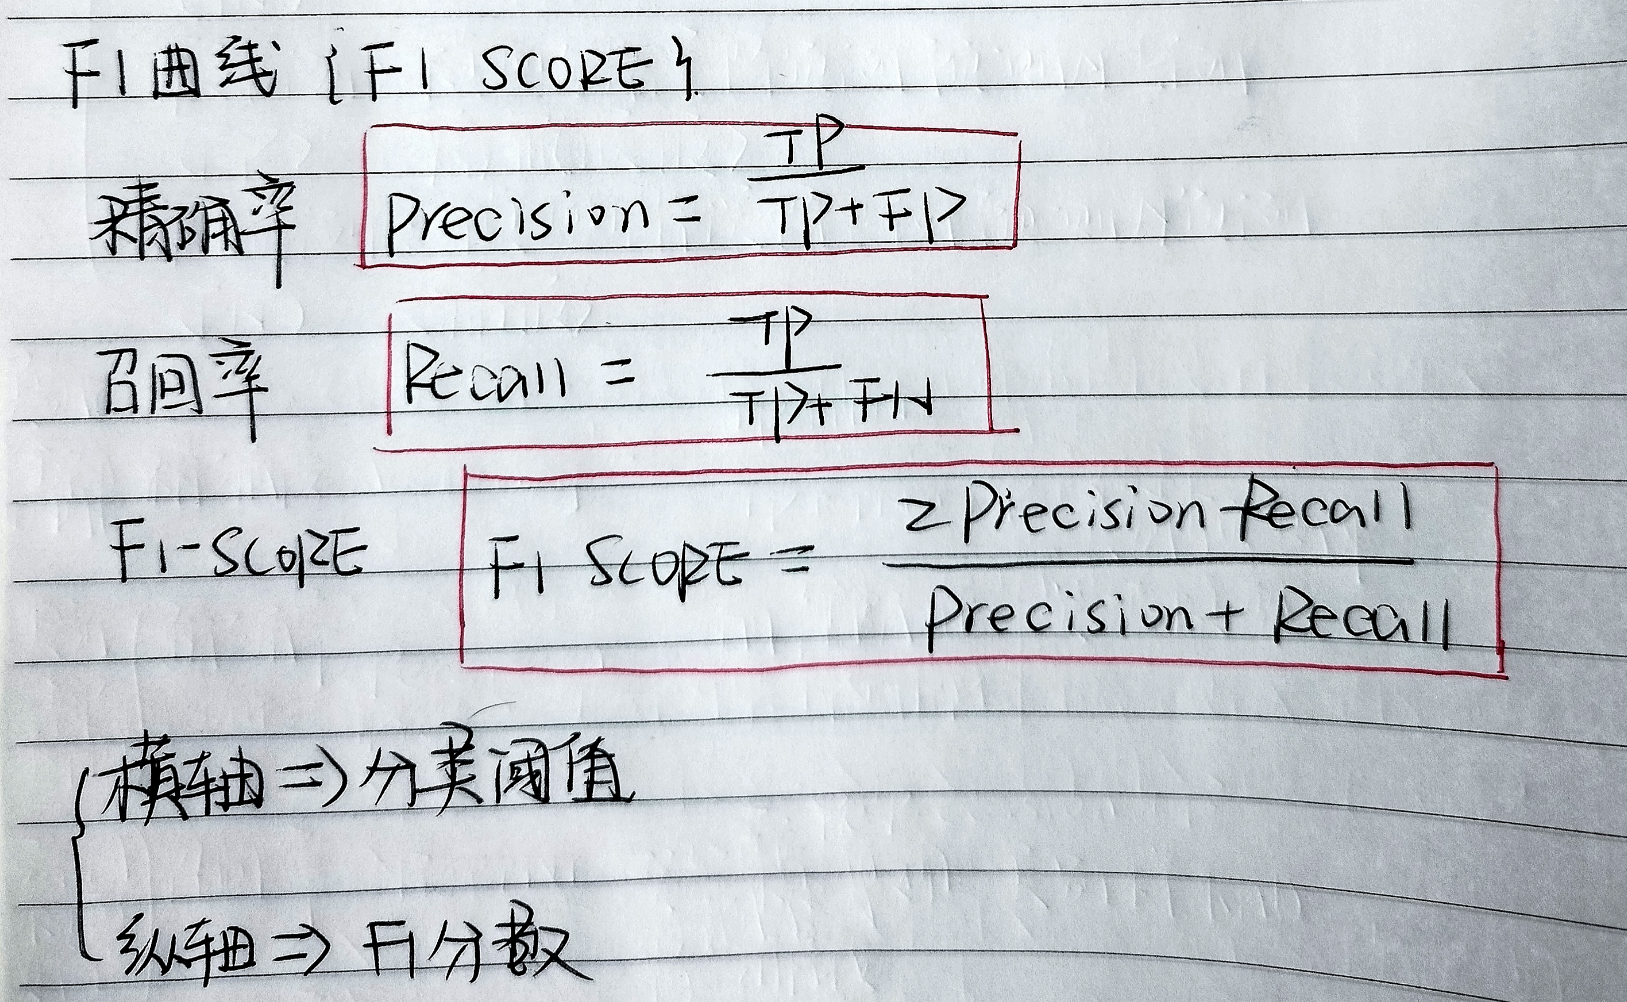 F1曲线 {F1 SCORE}
精确率 Precision = TP / TP+FP
召回率 Recall = TP / TP+FN
F1-SCORE F1 SCORE = 2Precision·Recall / Precision + Recall
横轴 => 分类阈值
纵轴 => F1分数